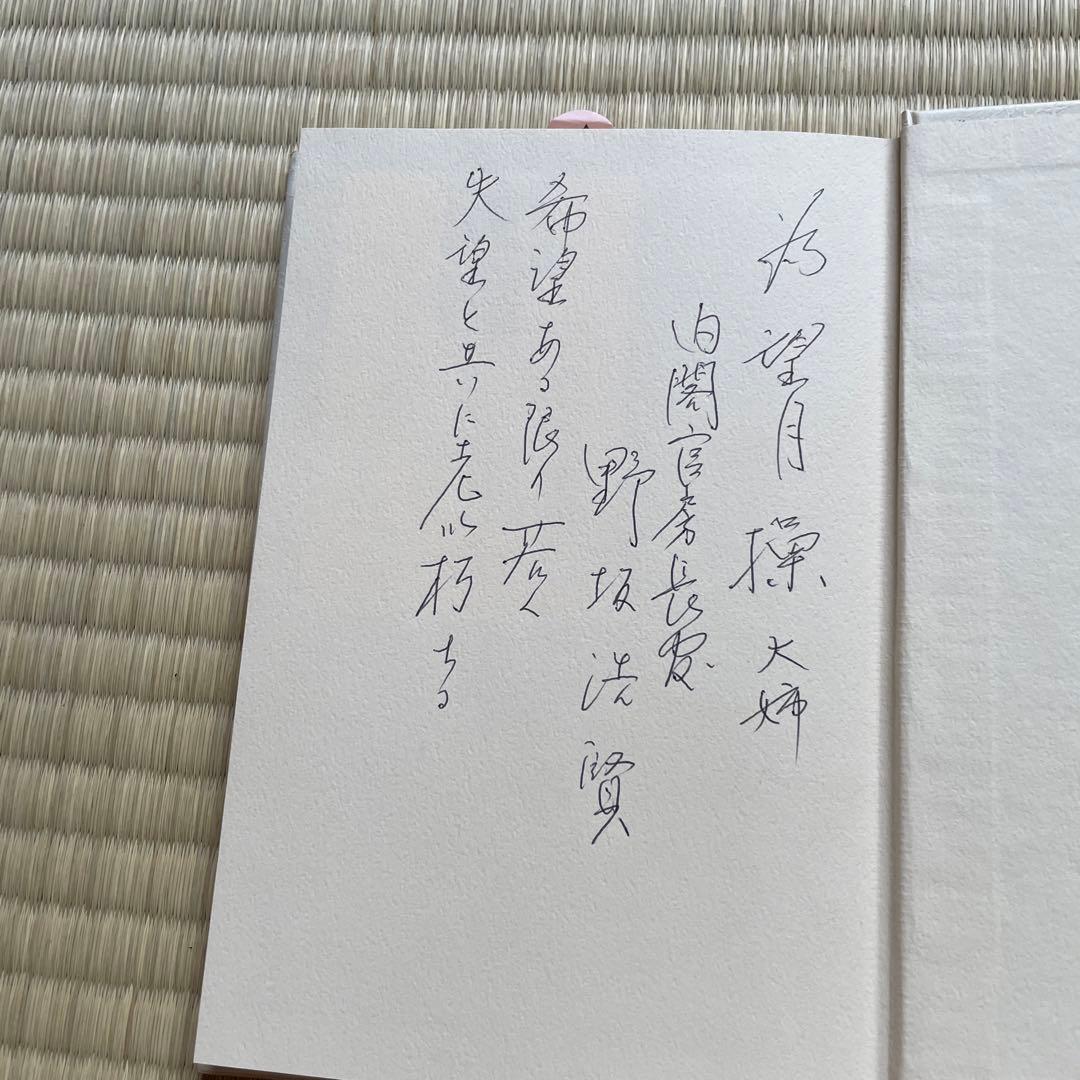 為 望月 操 大姉
内閣官房長官
野坂浩賢
希望ある限り若く
失望と共に老い朽ちる